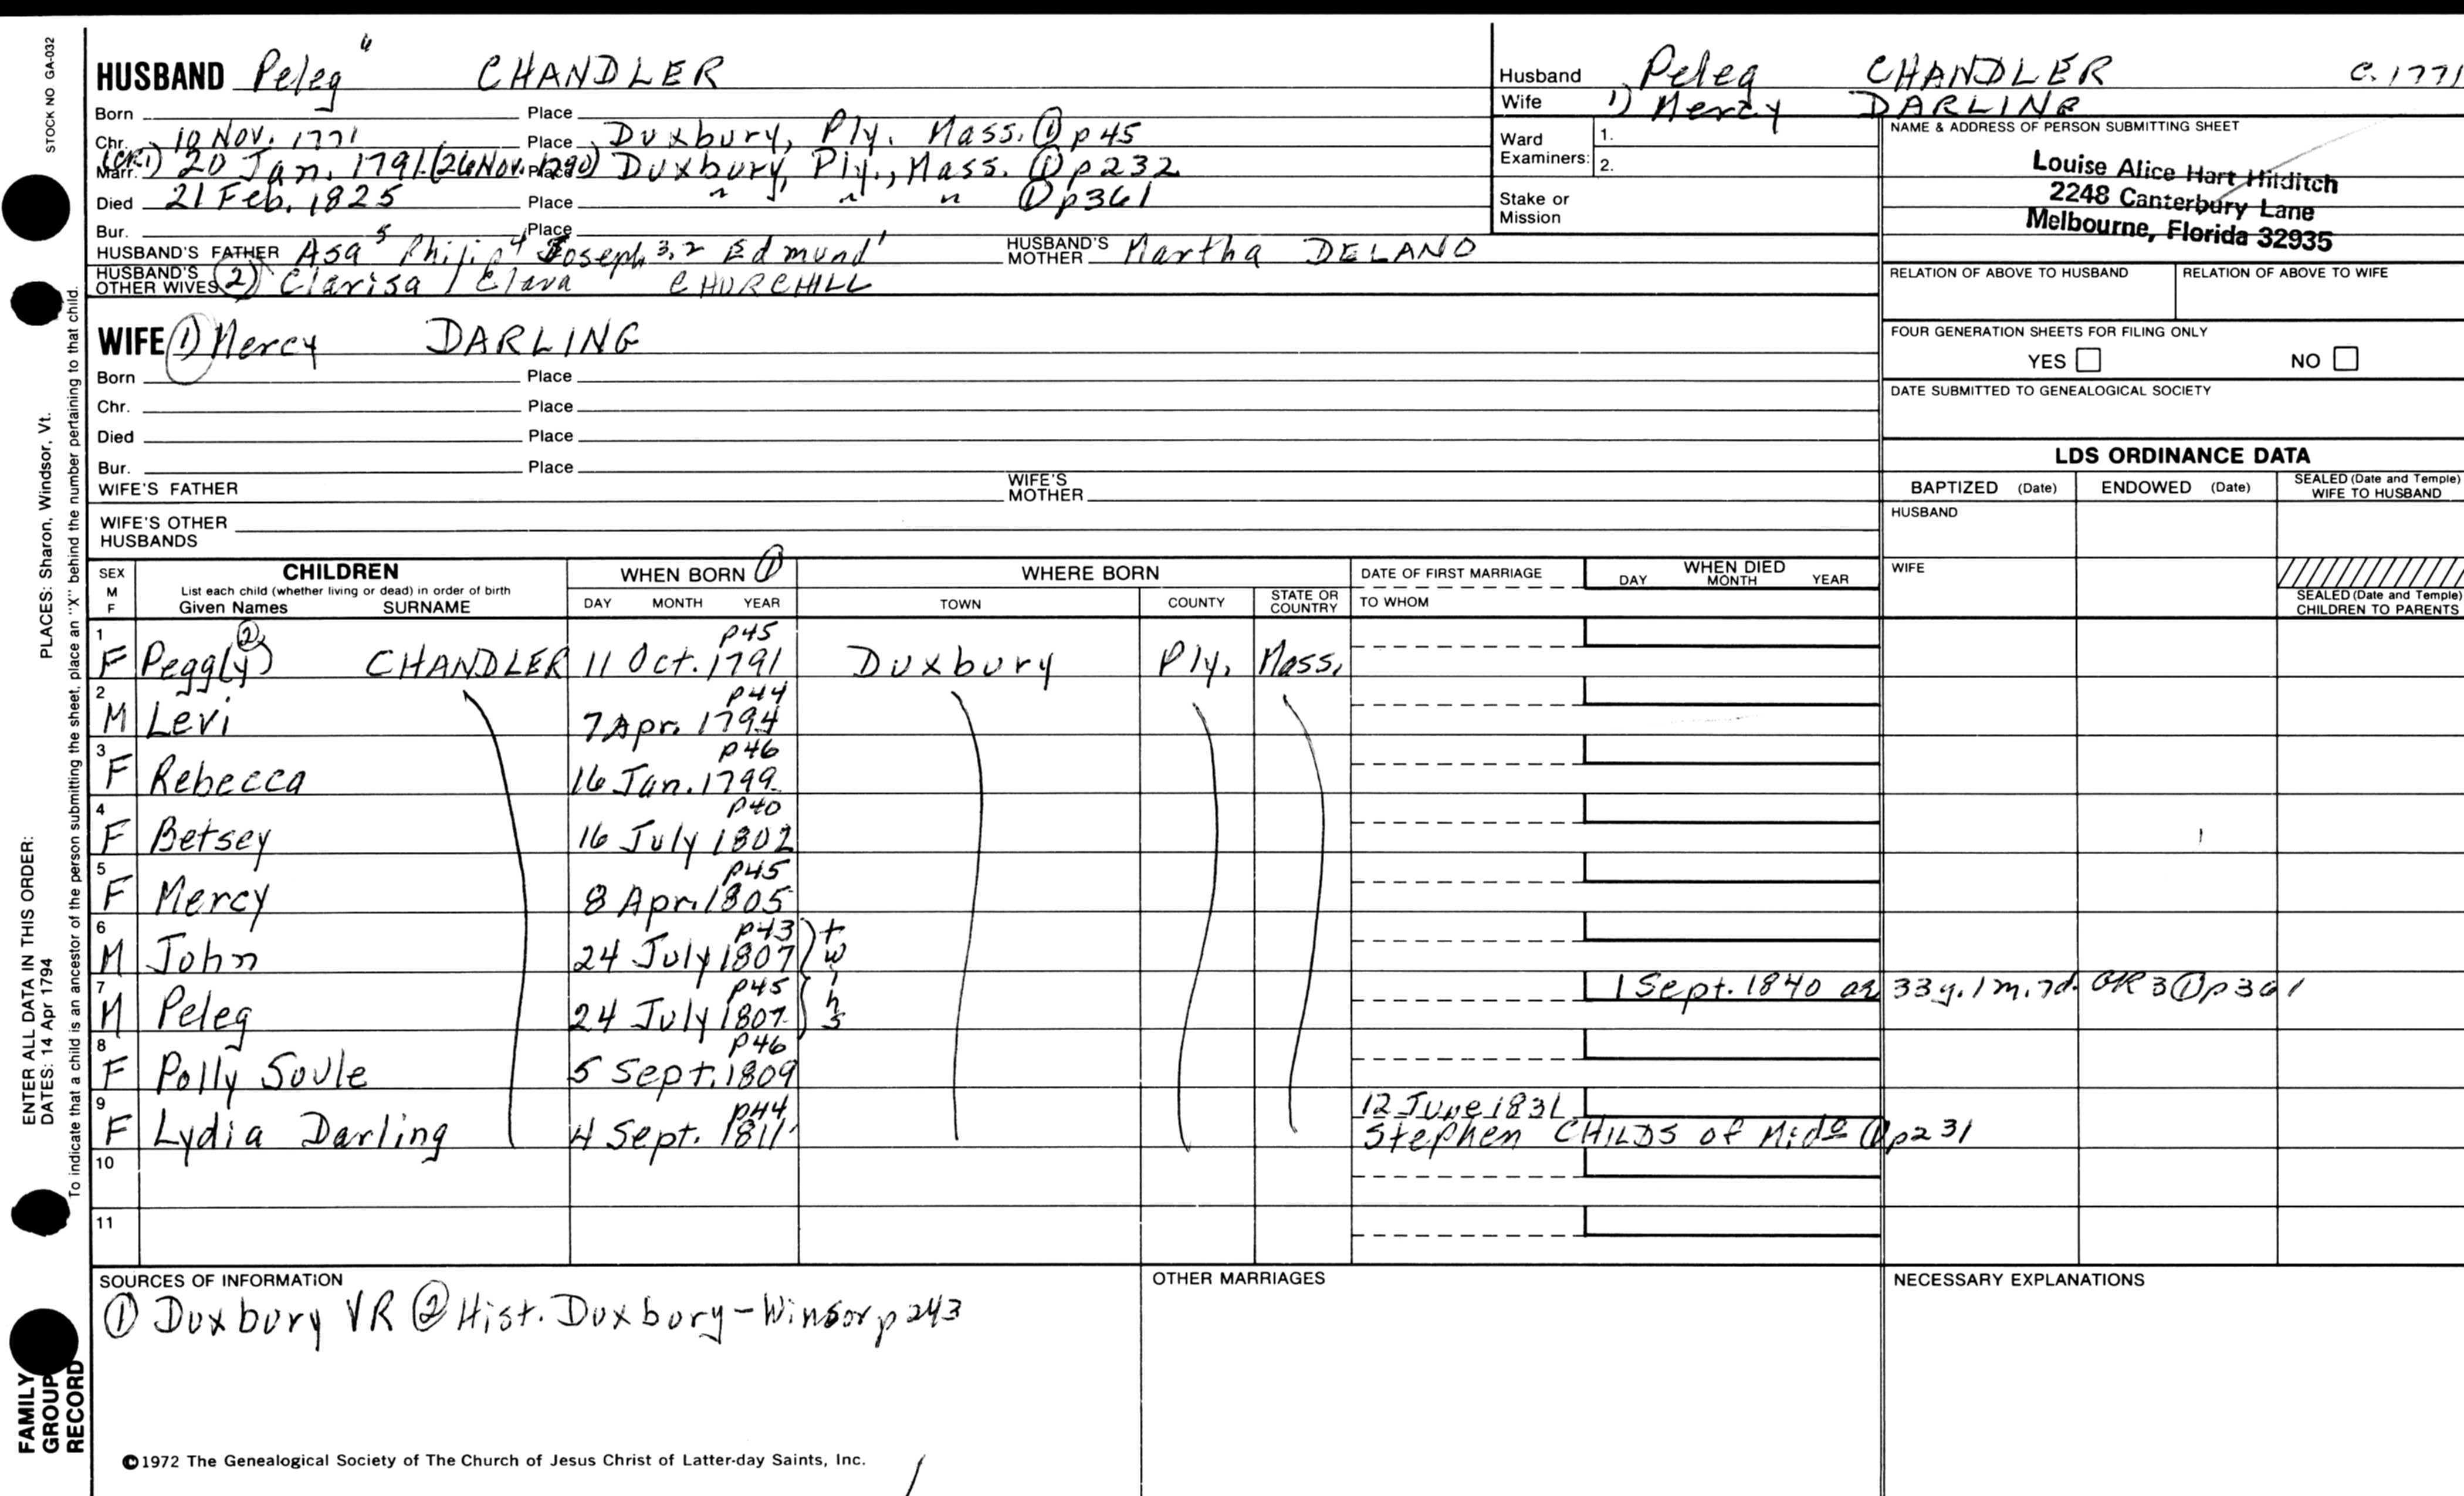 STOCK NO GA-032
HUSBAND Peleg 6 CHANDLER
Born Place
Chr. 10 Nov. 1771 Place Duxbury, Ply. Mass. ① p45
Marr. (CR1) 20 Jan. 1791 (26 Nov. 1790) Place Duxbury, Ply., Mass. ① p232
Died 21 Feb. 1825 Place " " " ① p361
Bur. Place
HUSBAND'S FATHER Asa 5 Philip 4 Joseph 3, 2 Edmund 1 HUSBAND'S MOTHER Martha DELANO
HUSBAND'S OTHER WIVES ② Clarisa / Clara CHURCHILL
WIFE ① Mercy DARLING
Born Place
Chr. Place
Died Place
Bur. Place
WIFE'S FATHER WIFE'S MOTHER
WIFE'S OTHER HUSBANDS
Husband Peleg CHANDLER C. 1771
Wife 1) Mercy DARLING
Ward Examiners: 1.
2.
Stake or Mission
NAME & ADDRESS OF PERSON SUBMITTING SHEET
Louise Alice Hart Hilditch
2248 Canterbury Lane
Melbourne, Florida 32935
RELATION OF ABOVE TO HUSBAND RELATION OF ABOVE TO WIFE
FOUR GENERATION SHEETS FOR FILING ONLY
YES NO
DATE SUBMITTED TO GENEALOGICAL SOCIETY
LDS ORDINANCE DATA
BAPTIZED (Date) ENDOWED (Date) SEALED (Date and Temple) WIFE TO HUSBAND
HUSBAND
WIFE
SEALED (Date and Temple) CHILDREN TO PARENTS
SEX M F CHILDREN WHEN BORN ① WHERE BORN DATE OF FIRST MARRIAGE WHEN DIED
List each child (whether living or dead) in order of birth
Given Names SURNAME DAY MONTH YEAR TOWN COUNTY STATE OR COUNTRY TO WHOM DAY MONTH YEAR
1 F Pegg(y) ② CHANDLER 11 Oct. 1791 p45 Duxbury Ply. Mass.
2 M Levi 7 Apr. 1794 p44
3 F Rebecca 16 Jan. 1799 p46
4 F Betsey 16 July 1802 p40
5 F Mercy 8 Apr. 1805 p45
6 M John 24 July 1807 p43 twins
7 M Peleg 24 July 1807 p45 1 Sept. 1840 ae 33y. 1m. 7d. GR3 ① p361
8 F Polly Soule 5 Sept. 1809 p46
9 F Lydia Darling 4 Sept. 1811 p44 12 June 1831
Stephen CHILDS of Mido ① p231
10
11
SOURCES OF INFORMATION OTHER MARRIAGES NECESSARY EXPLANATIONS
① Duxbury VR ② Hist. Duxbury-Winsor p243
©1972 The Genealogical Society of The Church of Jesus Christ of Latter-day Saints, Inc.
ENTER ALL DATA IN THIS ORDER:
PLACES: Sharon, Windsor, Vt.
DATES: 14 Apr 1794
To indicate that a child is an ancestor of the person submitting the sheet, place an "X" behind the number pertaining to that child.
FAMILY
GROUP
RECORD